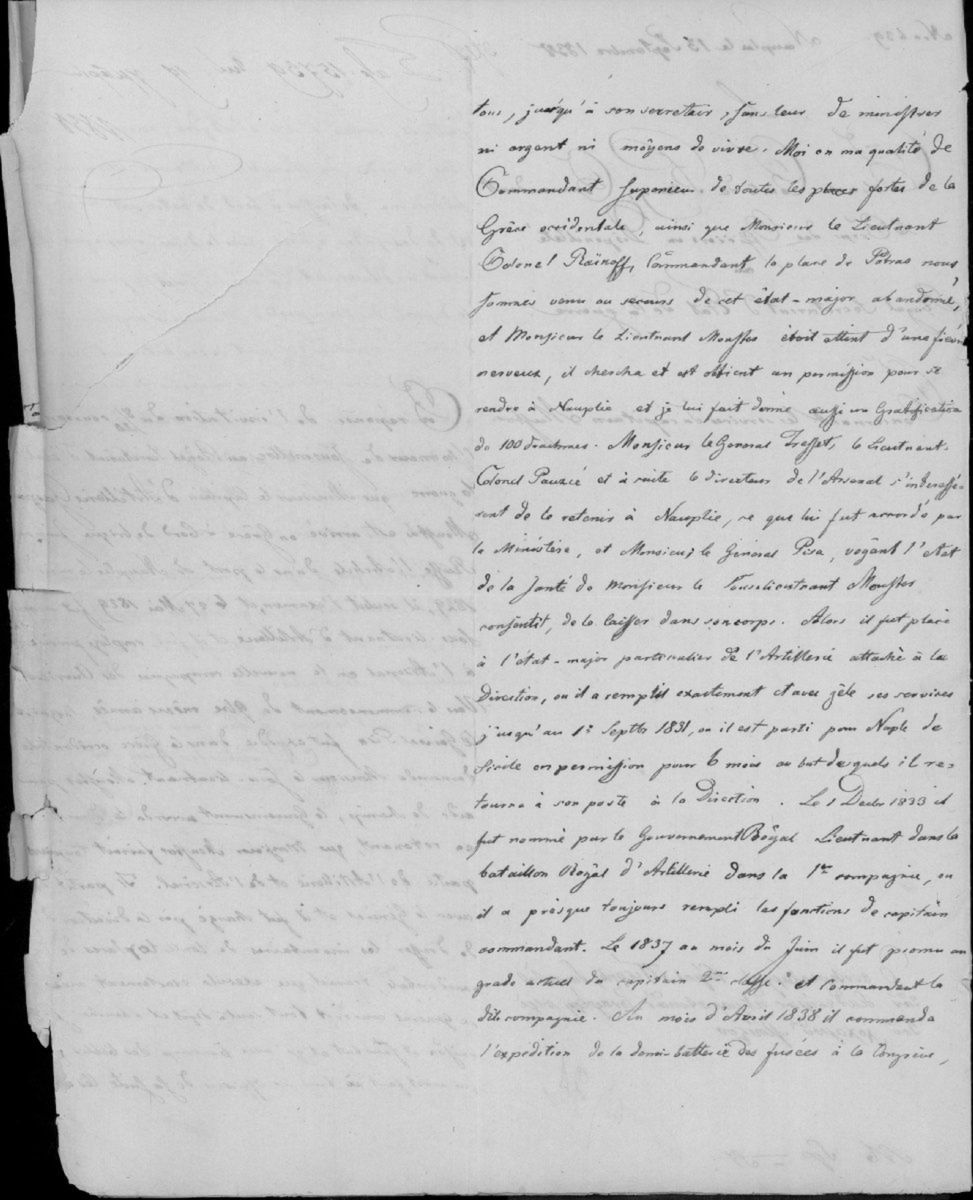 tous, jusqu'à son secretair, sans leur de ministrer
ni argent ni möyens de vivre. Moi en ma qualité de
Commandant Superieur de toutes les places fortes de la
Grèce occidentale, ainsi que Monsieur le Lieutnant
Colonel Raïkoff, Commandant la place de Patras nous
sommes venu au secours de cet état-major abandonné,
et Monsieur le Lieutnant Mouffes étoit attent d'une fievre
nerveux, il chercha et est obtient un permission pour se
rendre à Nauplie et je lui fait donné aussi un Gratification
de 100 drachmes. Monsieur le General Tresset, le Lieutnant-
Colonel Pauzié et à suite le directeur de l'Arsenal s'interessé-
rent de le retenir à Nauplie, ce que lui fut accordé par
la Ministère, et Monsieur le General Pisa, voÿant l'etat
de la Santé de Monsieur le Souslieutnant Mouffes
consentit, de le laisser dans son corps. Alors il fut placé
à l'état-major particulier de l'Artillerie attaché à la
Direction, ou il a remplis exactement et avec zèle ses services
jusqu'au 1r Septbr 1831, ou il est parti pour Naple de
Sicile en permission pour 6 mois au but desquels il re-
tourna à son poste à la Direction. Le 1 Decbr 1833 il
fut nommé par le Gouvernement Roÿal Lieutnant dans la
bataillon Roÿal d'Artillerie dans la 1re compagnie, ou
il a présque toujours rempli les fonctions de capitain
commandant. Le 1837 au mois du Juin il fut promu au
grade actuel du capitain 2me classe et commandant la
dite compagnie. Au mois d'Avril 1838 il commanda
l'expedition de la demi-batterie des fusées à la Congrève,